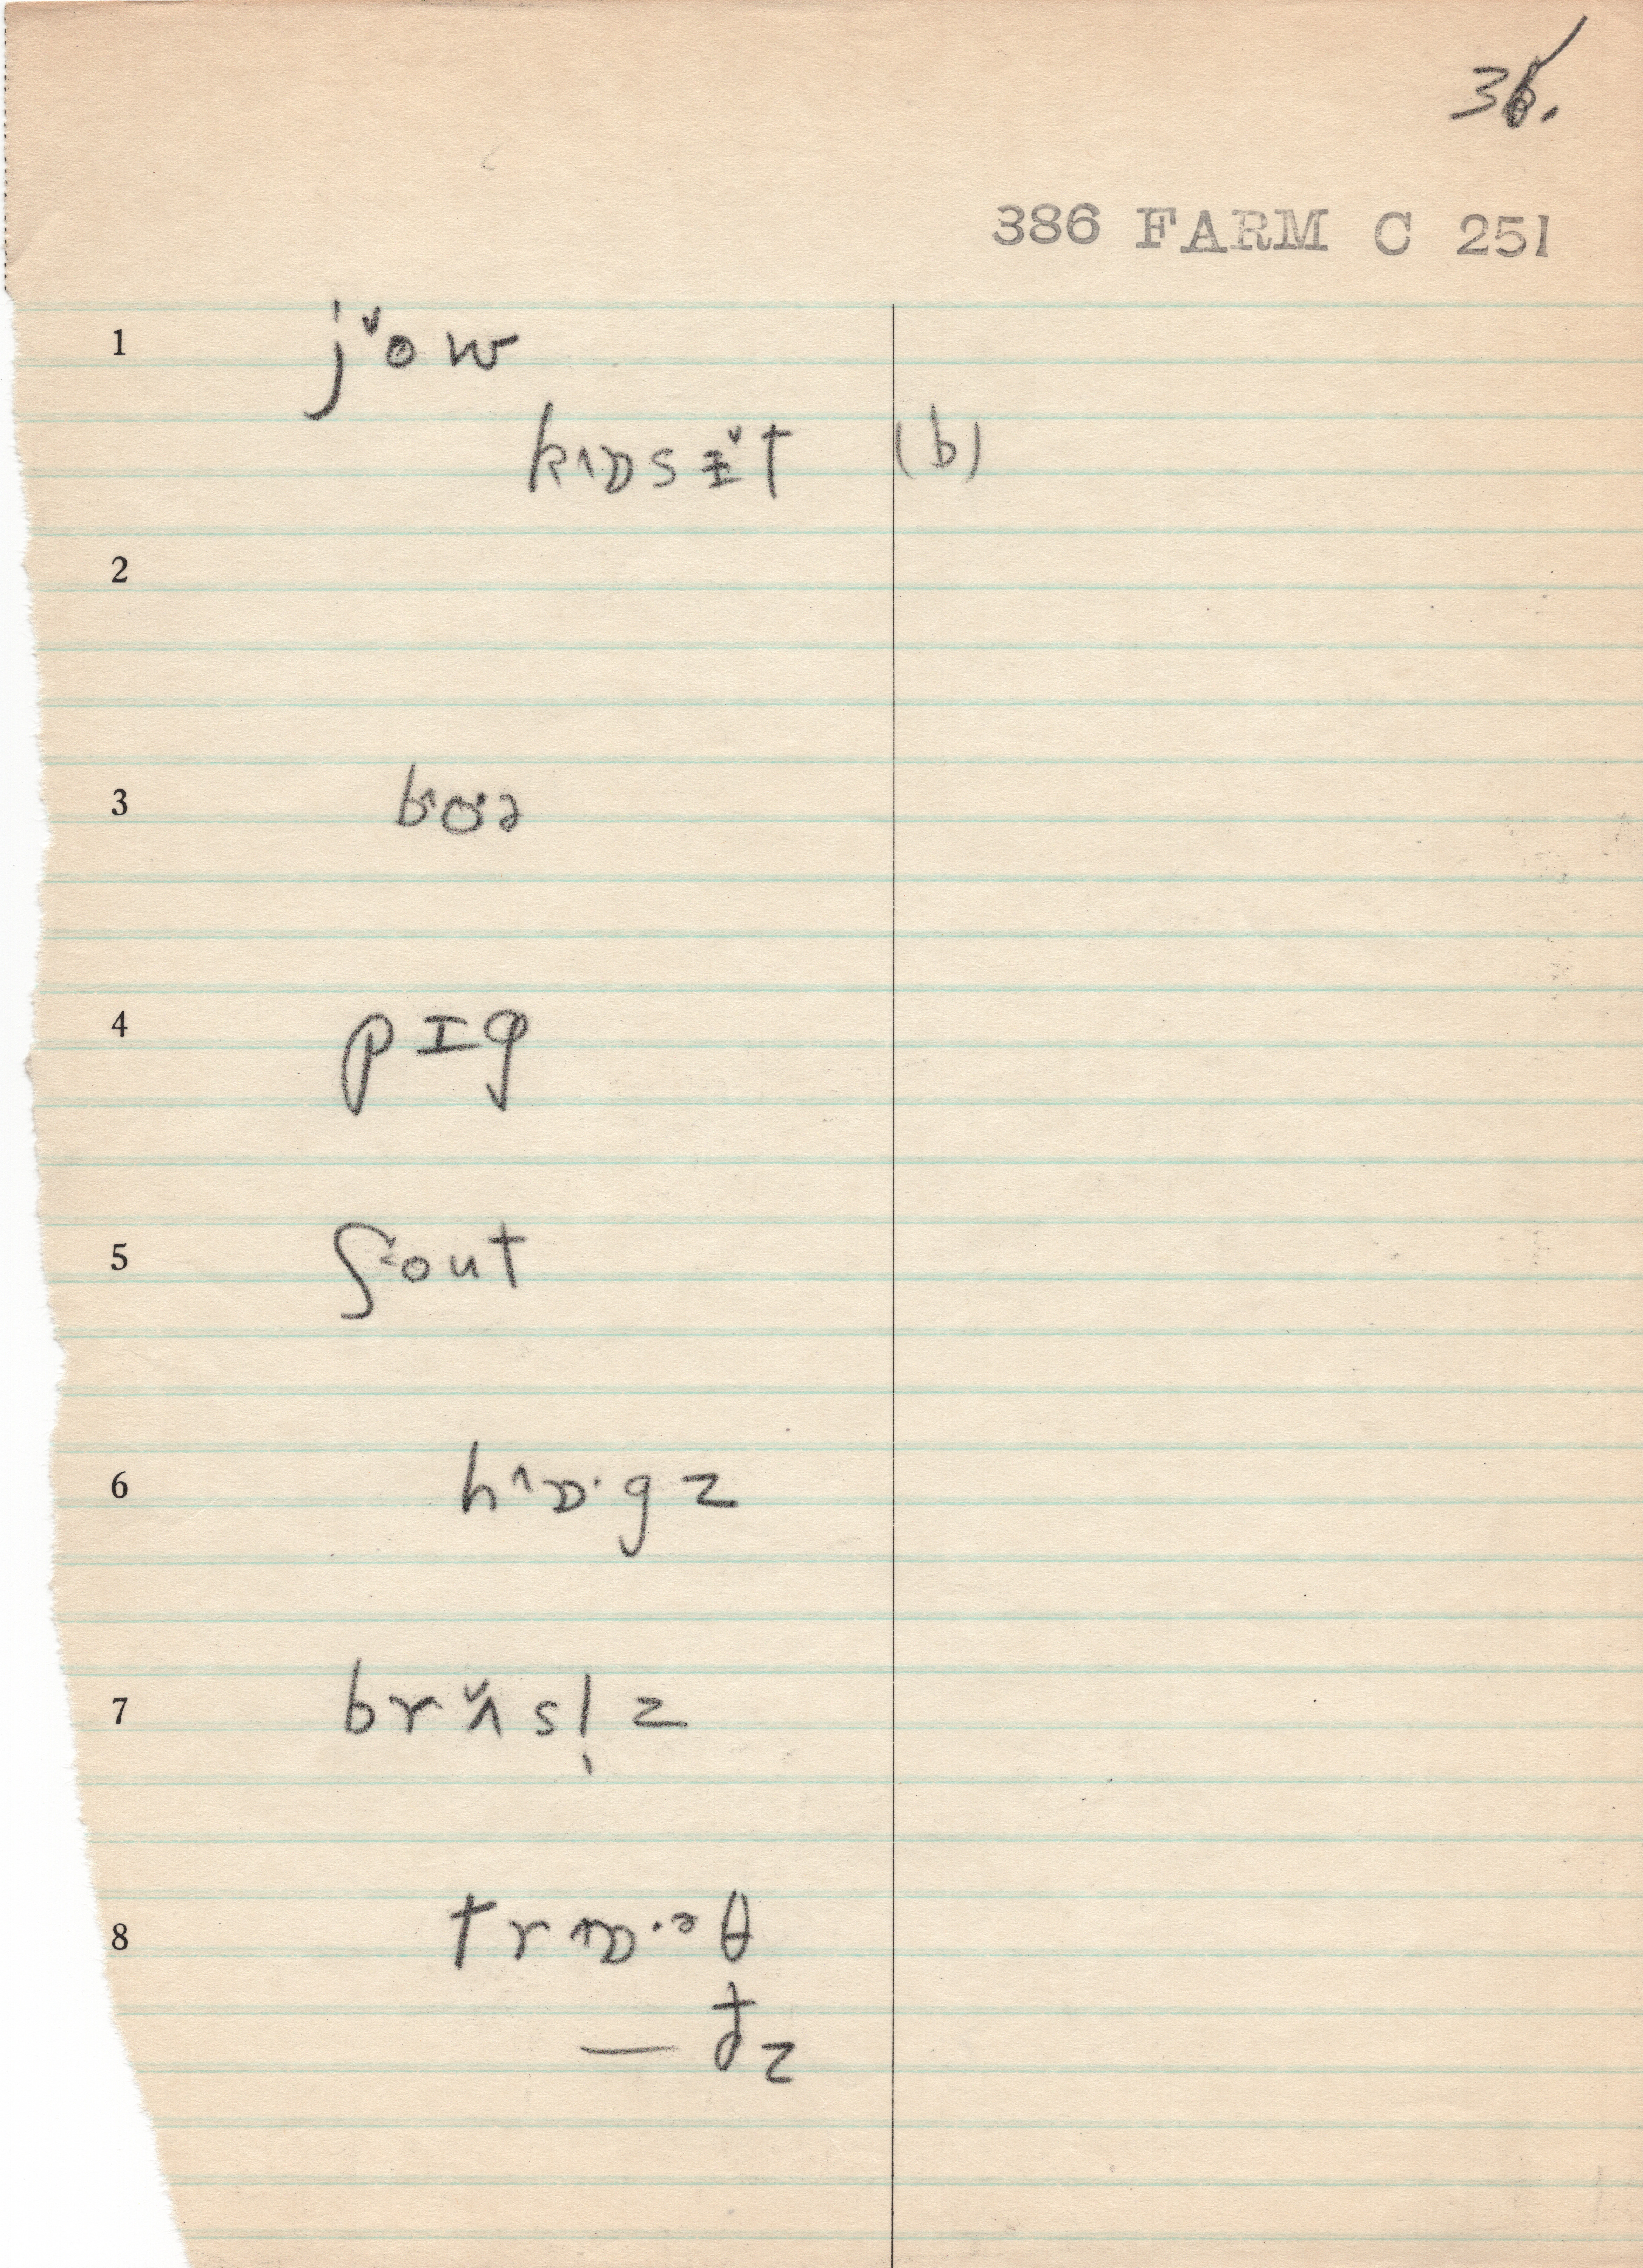 36.
386 FARM C 251
1 j˅ow
kɒ˄sɪ˅t (b)
2
3 bo˄·ə
4 pɪg
5 ʃ˂out
6 h˄ɒ·gz
7 brʌ̌sl̩z
8 tr˄ɒ·ᵊθ
— ðz